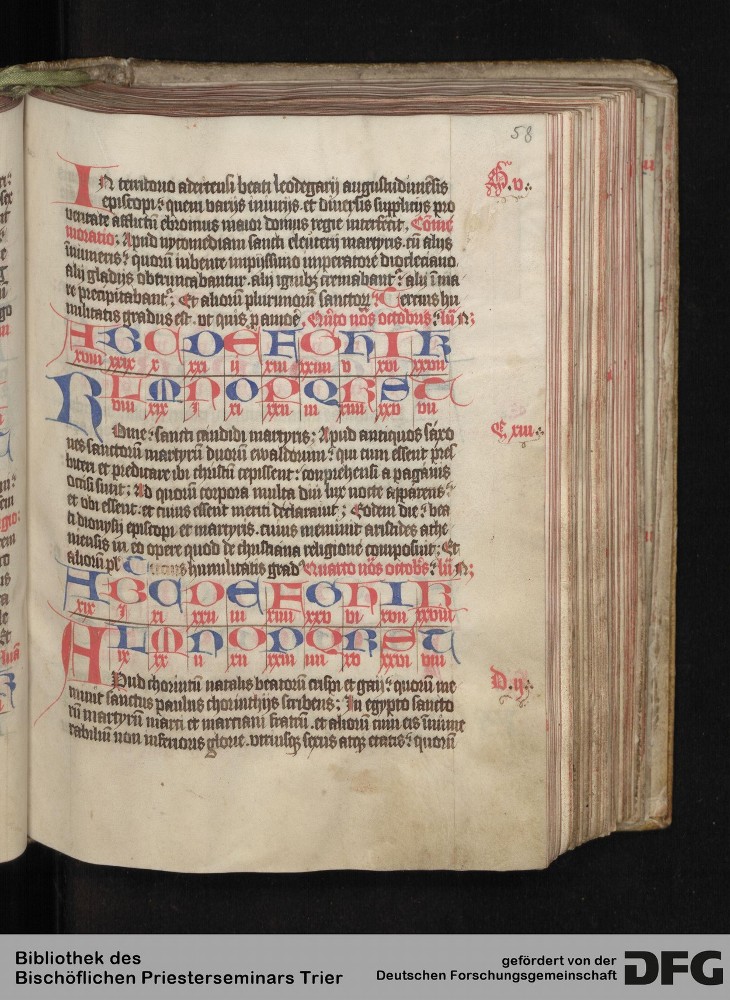 58
In territorio adertensi beati leodegarij augustudunēsis
episcopi: quem varijs iniurijs et diuersis supplicijs pro
ueritate afflictū ebroinus maior domus regie interfecit. Cōme
moratio: Apud nycomediam sancti eleuterij martyris. cū alijs
inumeris: quorū iubente impijssimo imperatore diocleciano.
alij gladijs obtruncabantur. alij ignibꝫ cremabant᷑: alij ī ma
re precipitabant᷑: Et aliorū plurimorū sanctoꝝ: Tercius hu
militatis gradus est. vt quis p amore. Quīto nōs octobris: lūn:
S. v.
A B C D E F G H I K
xviii xxix x xxi ij xiii xxiiii v xvi xxvii
L M N O P Q R S T
viii xix I xi xxii iii xiiii xxv vii
Rome: sancti candidi martyris: Apud antiquos saxo
nes sanctorū martyrū duorū ewaldorum: qui cum essent pres
biteri et predicare ibi christū cepissent: conprehensi a paganis
occisi sunt: Ad quorū corpora multa diu lux nocte apparens:
et vbi essent. et cuius essent meriti declarauit: Eodem die: bea
ti dionysij episcopi et martyris. cuius meminit aristides athe
niensis in eo opere quod de christiana religione composuit: Et
aliorū pl Quartus humilitatis grad Quarto nōs octobꝰs: lūn:
C. xiii
A B C D E F G H I K
xix I xi xxii iii xiiii xxv vi xvii xxviii
L M N O P Q R S T
ix xx ii xii xxiii iiii xv xxvi viii
Apud chorintū natalis beatorū crispi et gaij: quorū me
minit sanctus paulus chorinthijs scribens: In egypto sancto
rū martyrū marci et marciani fratrū. et aliorū cum eis inume
rabiliū non inferioris glorie. vtriusqꝫ sexus atqꝫ etatis: quorū
D. ij.
Bibliothek des
Bischöflichen Priesterseminars Trier
gefördert von der
Deutschen Forschungsgemeinschaft
DFG